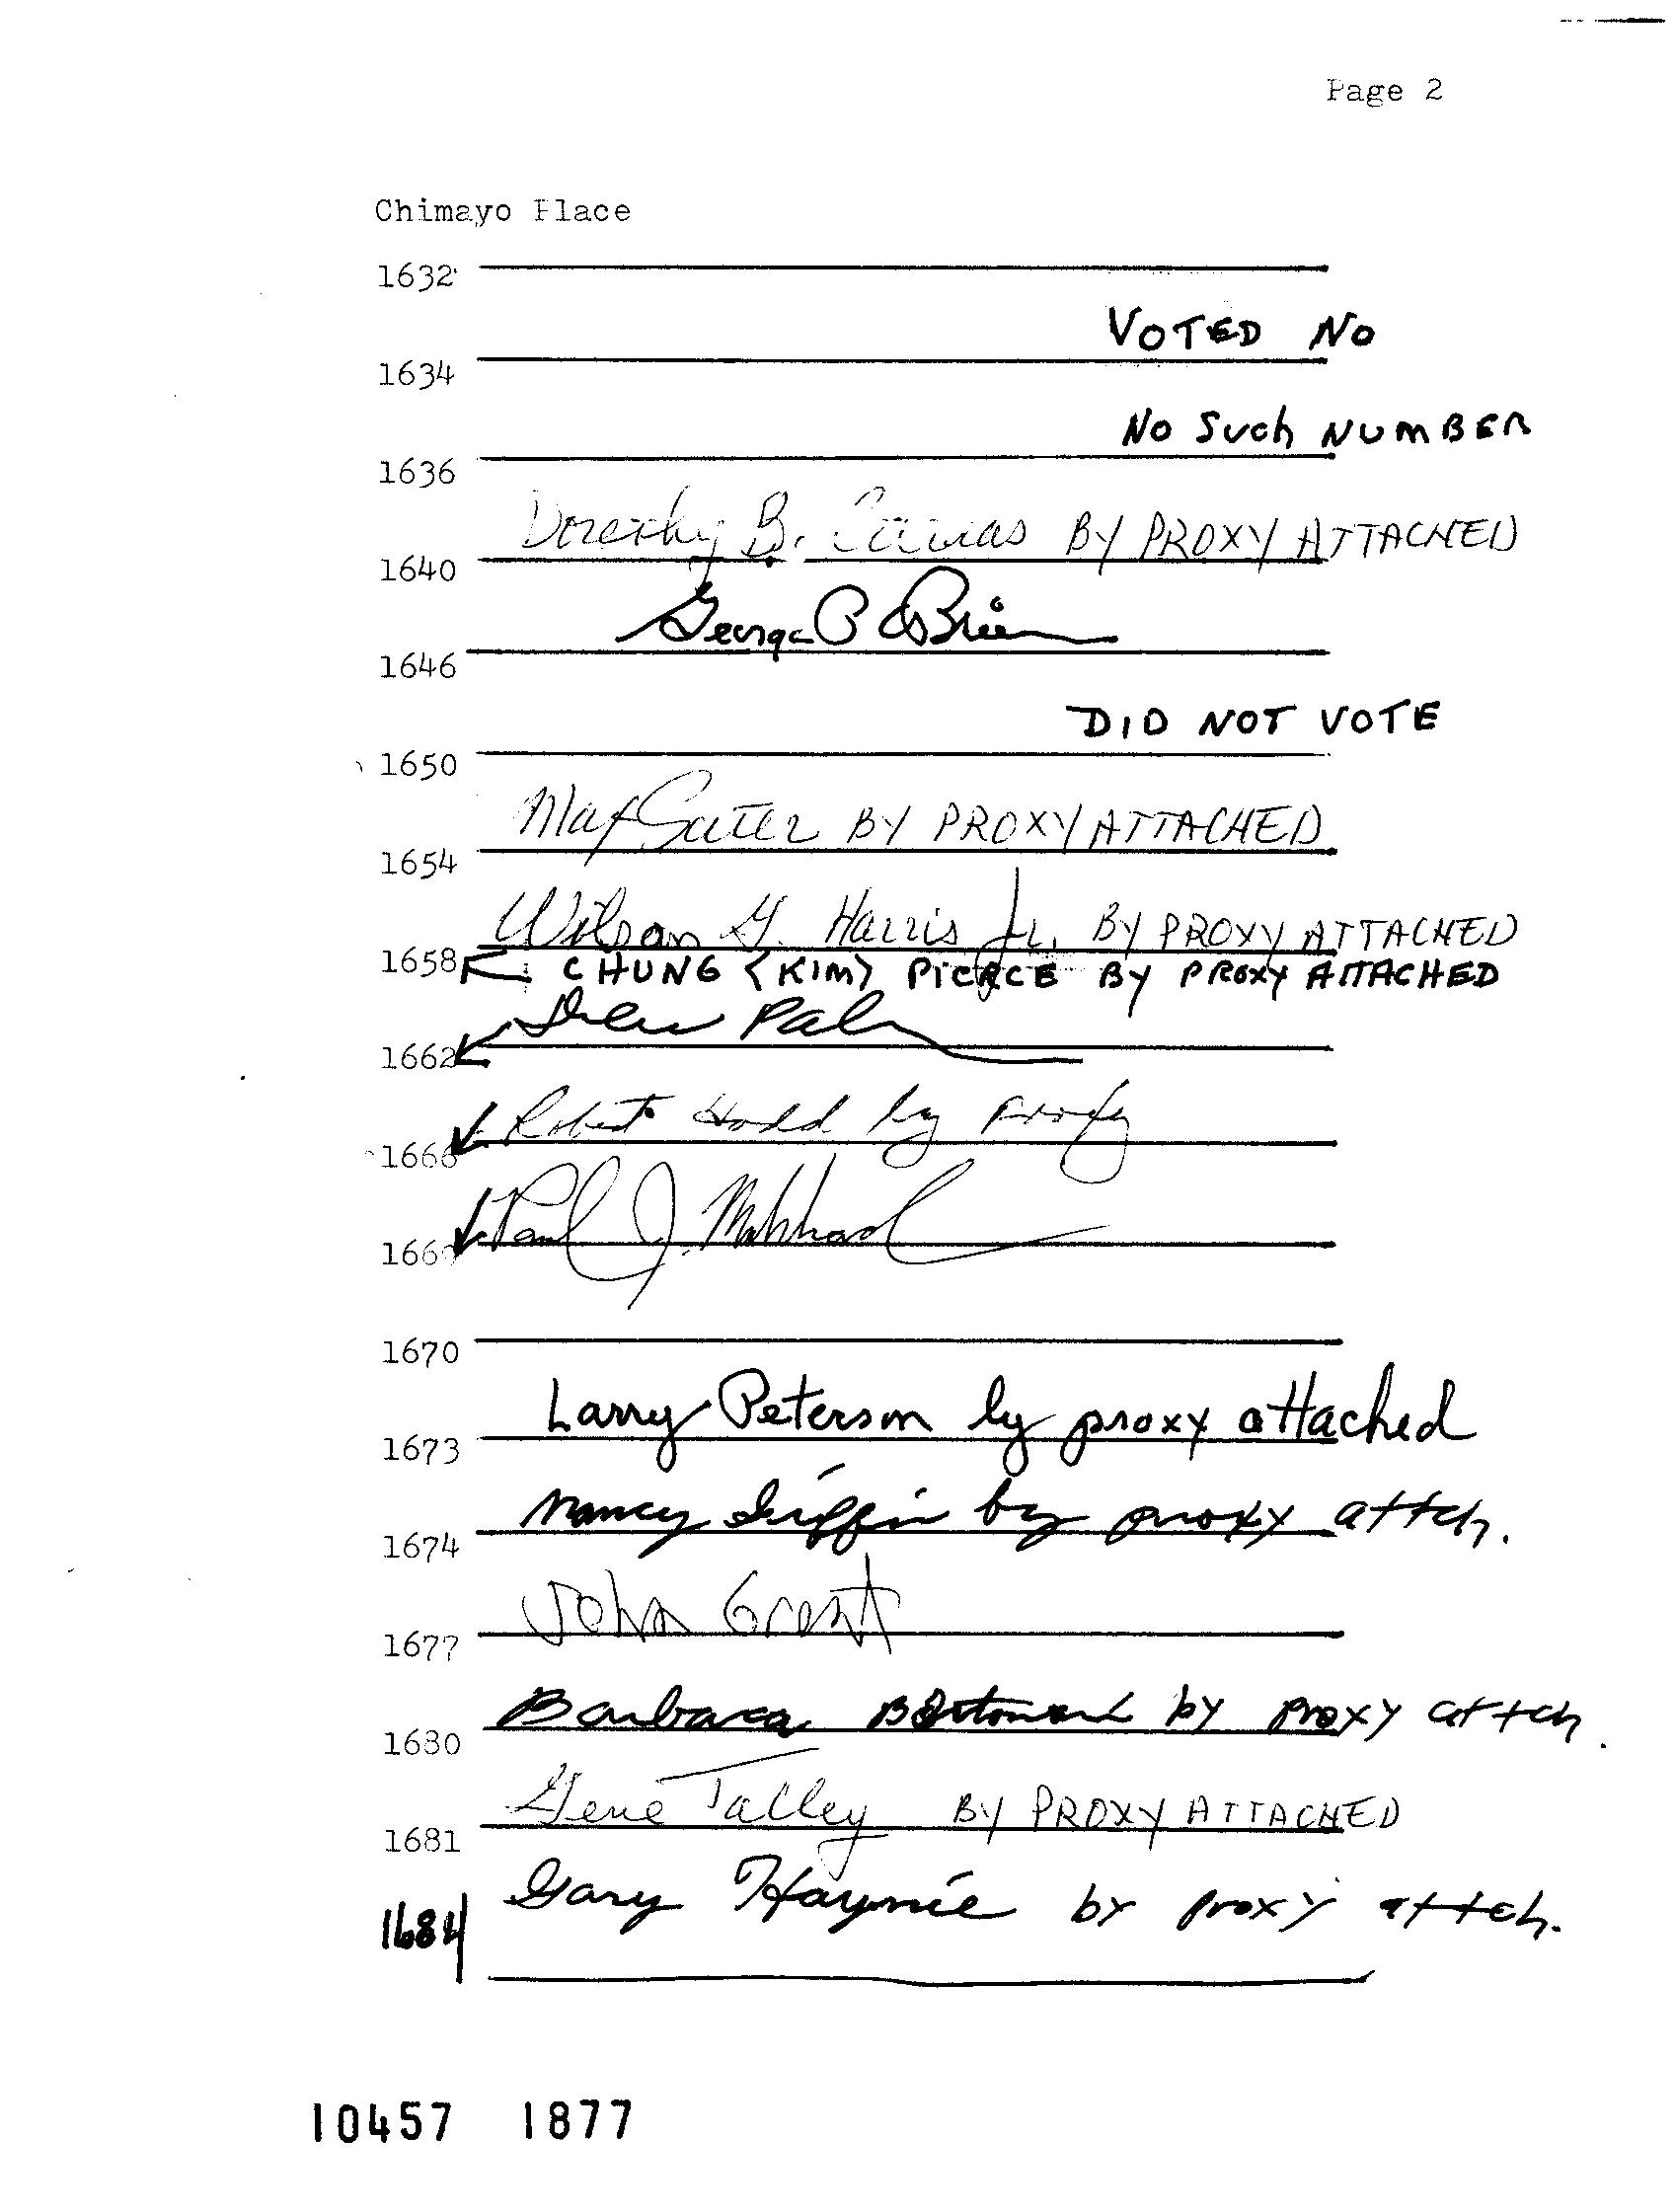 Page 2
Chimayo Place
1632
VOTED NO
1634
NO SUCH NUMBER
1636
Dorothy B. BY PROXY ATTACHED
1640
George P O'Brien
1646
DID NOT VOTE
1650
Max BY PROXY ATTACHED
1654
Wilson G. Harris Jr. BY PROXY ATTACHED
1658 CHUNG (KIM) PIERCE BY PROXY ATTACHED
1662
Robert by Proxy
1666
Paul J.
1670
Larry Peterson by proxy attached
1673
Nancy Griffin by proxy attch.
1674
John Grant
1677
Barbara by Proxy attch.
1680
Gene Talley BY PROXY ATTACHED
1681
Gary Haynie by proxy attch.
1684
10457 1877